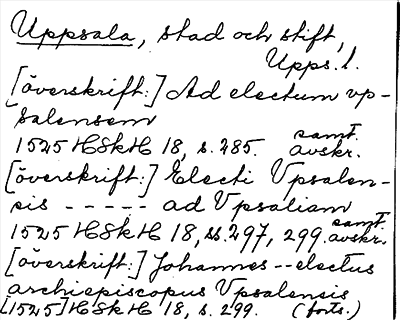 Uppsala, stad och stift,
Upps. l.
[överskrift:] Ad electum vp-
salensem
1525 HSkH 18, s. 285. samt. avskr.
[överskrift:] Electi Vpsalen-
sis ----- ad Vpsaliam
1525 HSkH 18, ss. 297, 299. samt. avskr.
[överskrift:] Johannes -- electus
archiepiscopus Vpsalensis
[1525] HSkH 18, s. 299. (forts.)